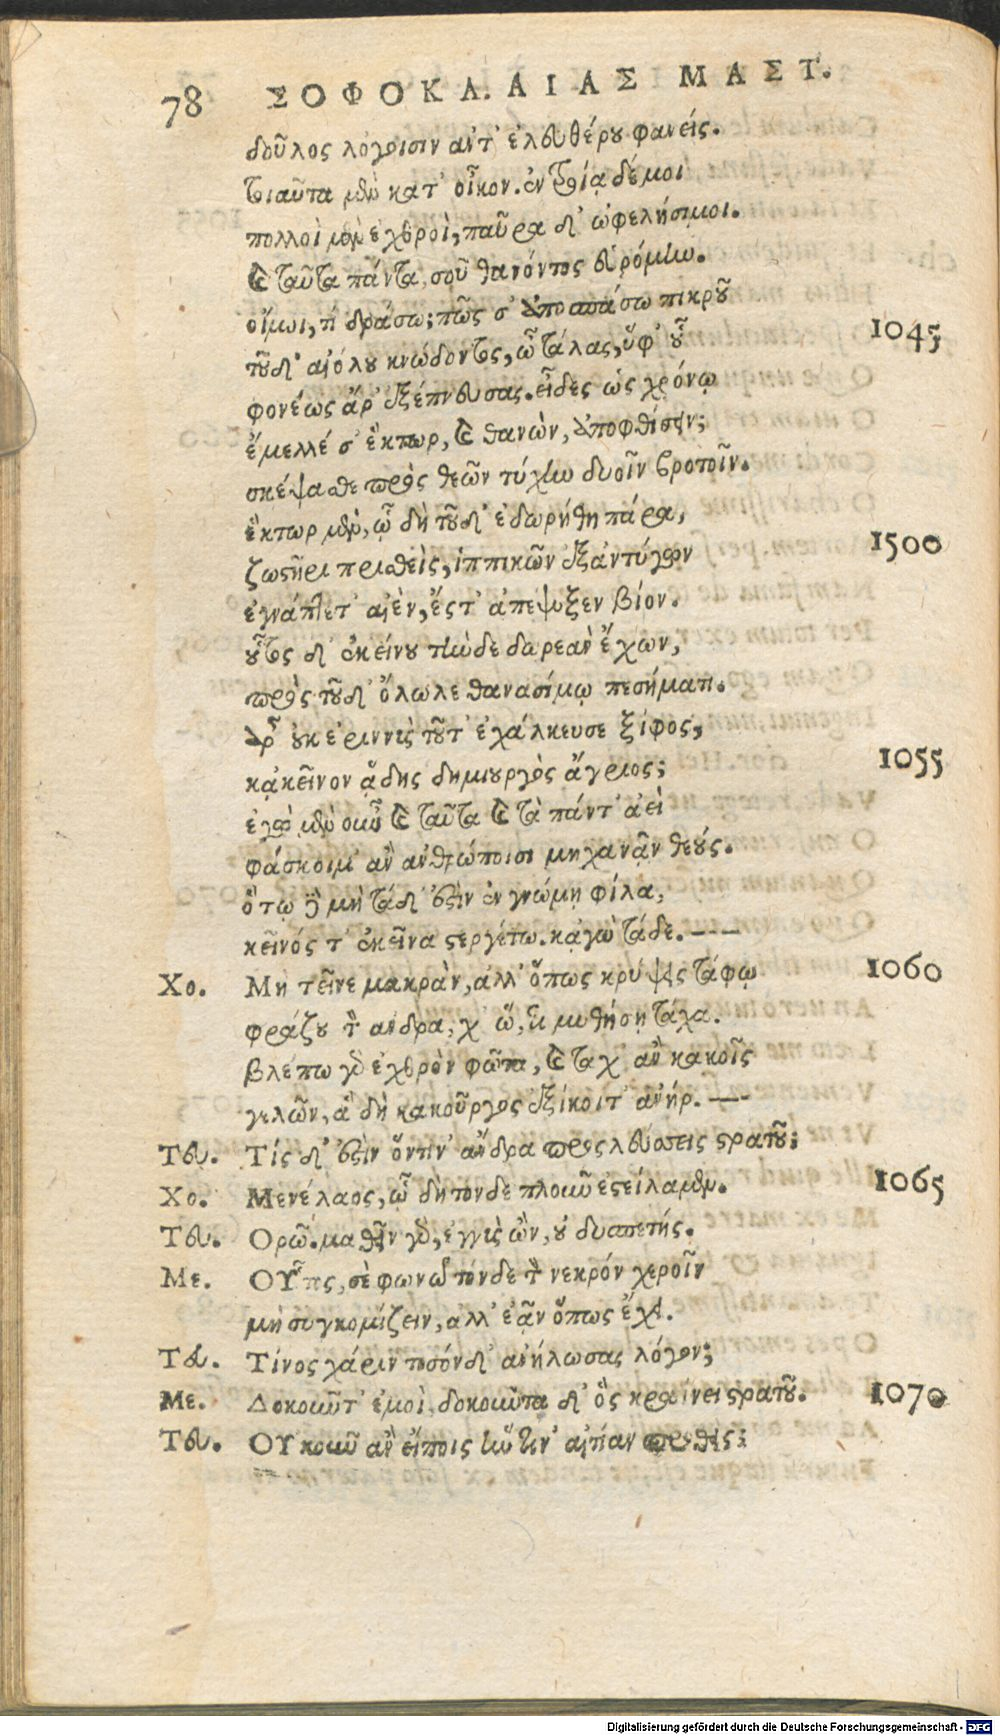 78 ΣΟΦΟΚΛ. ΑΙΑΣ ΜΑΣΤ.
δοῦλος λόγοισιν ἀντ' ἐλευθέρου φανείς.
τοιαῦτα μὲν κατ' οἶκον. ἐν τροίᾳ δέ μοι
πολλοὶ μὲν ἐχθροὶ, παῦρα δ' ὠφελήσιμοι.
καὶ ταῦτα πάντα, σοῦ θανόντος εὑρόμην.
οἴμοι, τί δράσω; πῶς σ' ἀποσπάσω πικροῦ 1045
τοῦδ' αἰόλου κνώδοντος, ὦ τάλας, ὑφ' οὗ
φονέως ἄρ' ἐξέπνευσας. εἶδες ὡς χρόνῳ
ἔμελλέ σ' ἕκτωρ, καὶ θανὼν, ἀποφθίσειν;
σκέψασθε πρὸς θεῶν τύχην δυοῖν βροτοῖν.
ἕκτωρ μὲν, ᾧ δὴ τοῦδ' ἐδωρήθη πάρα,
ζωστῆρι πρισθεὶς, ἱππικῶν ἐξ ἀντύγων 1500
ἐγνάπτετ' αἰὲν, ἔστ' ἀπέψυξεν βίον.
οὗτος δ' ἐκείνου τήνδε δωρεὰν ἔχων,
πρὸς τοῦδ' ὄλωλε θανασίμῳ πεσήματι.
ἆρ' οὐκ ἐριννὺς τοῦτ' ἐχάλκευσε ξίφος,
κᾀκεῖνον ᾅδης δημιουργὸς ἄγριος; 1055
ἐγὼ μὲν οὖν καὶ ταῦτα καὶ τὰ πάντ' ἀεὶ
φάσκοιμ' ἂν ἀνθρώποισι μηχανᾷν θεούς.
ὅτῳ δὲ μὴ τάδ' ἐστὶν ἐν γνώμῃ φίλα,
κεῖνός τ' ἐκεῖνα στεργέτω. κᾀγὼ τάδε. ---
Χο. Μὴ τεῖνε μακρὰν, ἀλλ' ὅπως κρύψεις τάφῳ 1060
φράζου τὸν ἄνδρα, χ' ὥ, τι μυθήσῃ τάχα.
βλέπω γὰρ ἐχθρὸν φῶτα, καὶ τάχ' ἂν κακοῖς
γελῶν, ἃ δὴ κακοῦργος ἐξίκοιτ' ἀνήρ. ---
Τευ. Τίς δ' ἐστὶν ὅντιν' ἄνδρα προςλεύσσεις στρατοῦ;
Χο. Μενέλαος, ᾧ δὴ τόνδε πλοῦν ἐστείλαμεν. 1065
Τευ. Ορῶ. μαθεῖν γὰρ, ἐγγὺς ὢν, οὐ δυσπετής.
Με. ΟΥ̓͂τος, σὲ φωνῶ τόνδε τὸν νεκρόν χεροῖν
μὴ συγκομίζειν, ἀλλ' ἐᾷν ὅπως ἔχει.
Τευ. Τίνος χάριν τοσόνδ' ἀνήλωσας λόγον;
Με. Δοκοῦντ' ἐμοὶ, δοκοῦντα δ' ὃς κραίνει στρατοῦ. 1070
Τευ. ΟΥ κοῦν ἂν εἴποις ἥντιν' αἰτίαν προθείς;
Digitalisierung gefördert durch die Deutsche Forschungsgemeinschaft - DFG